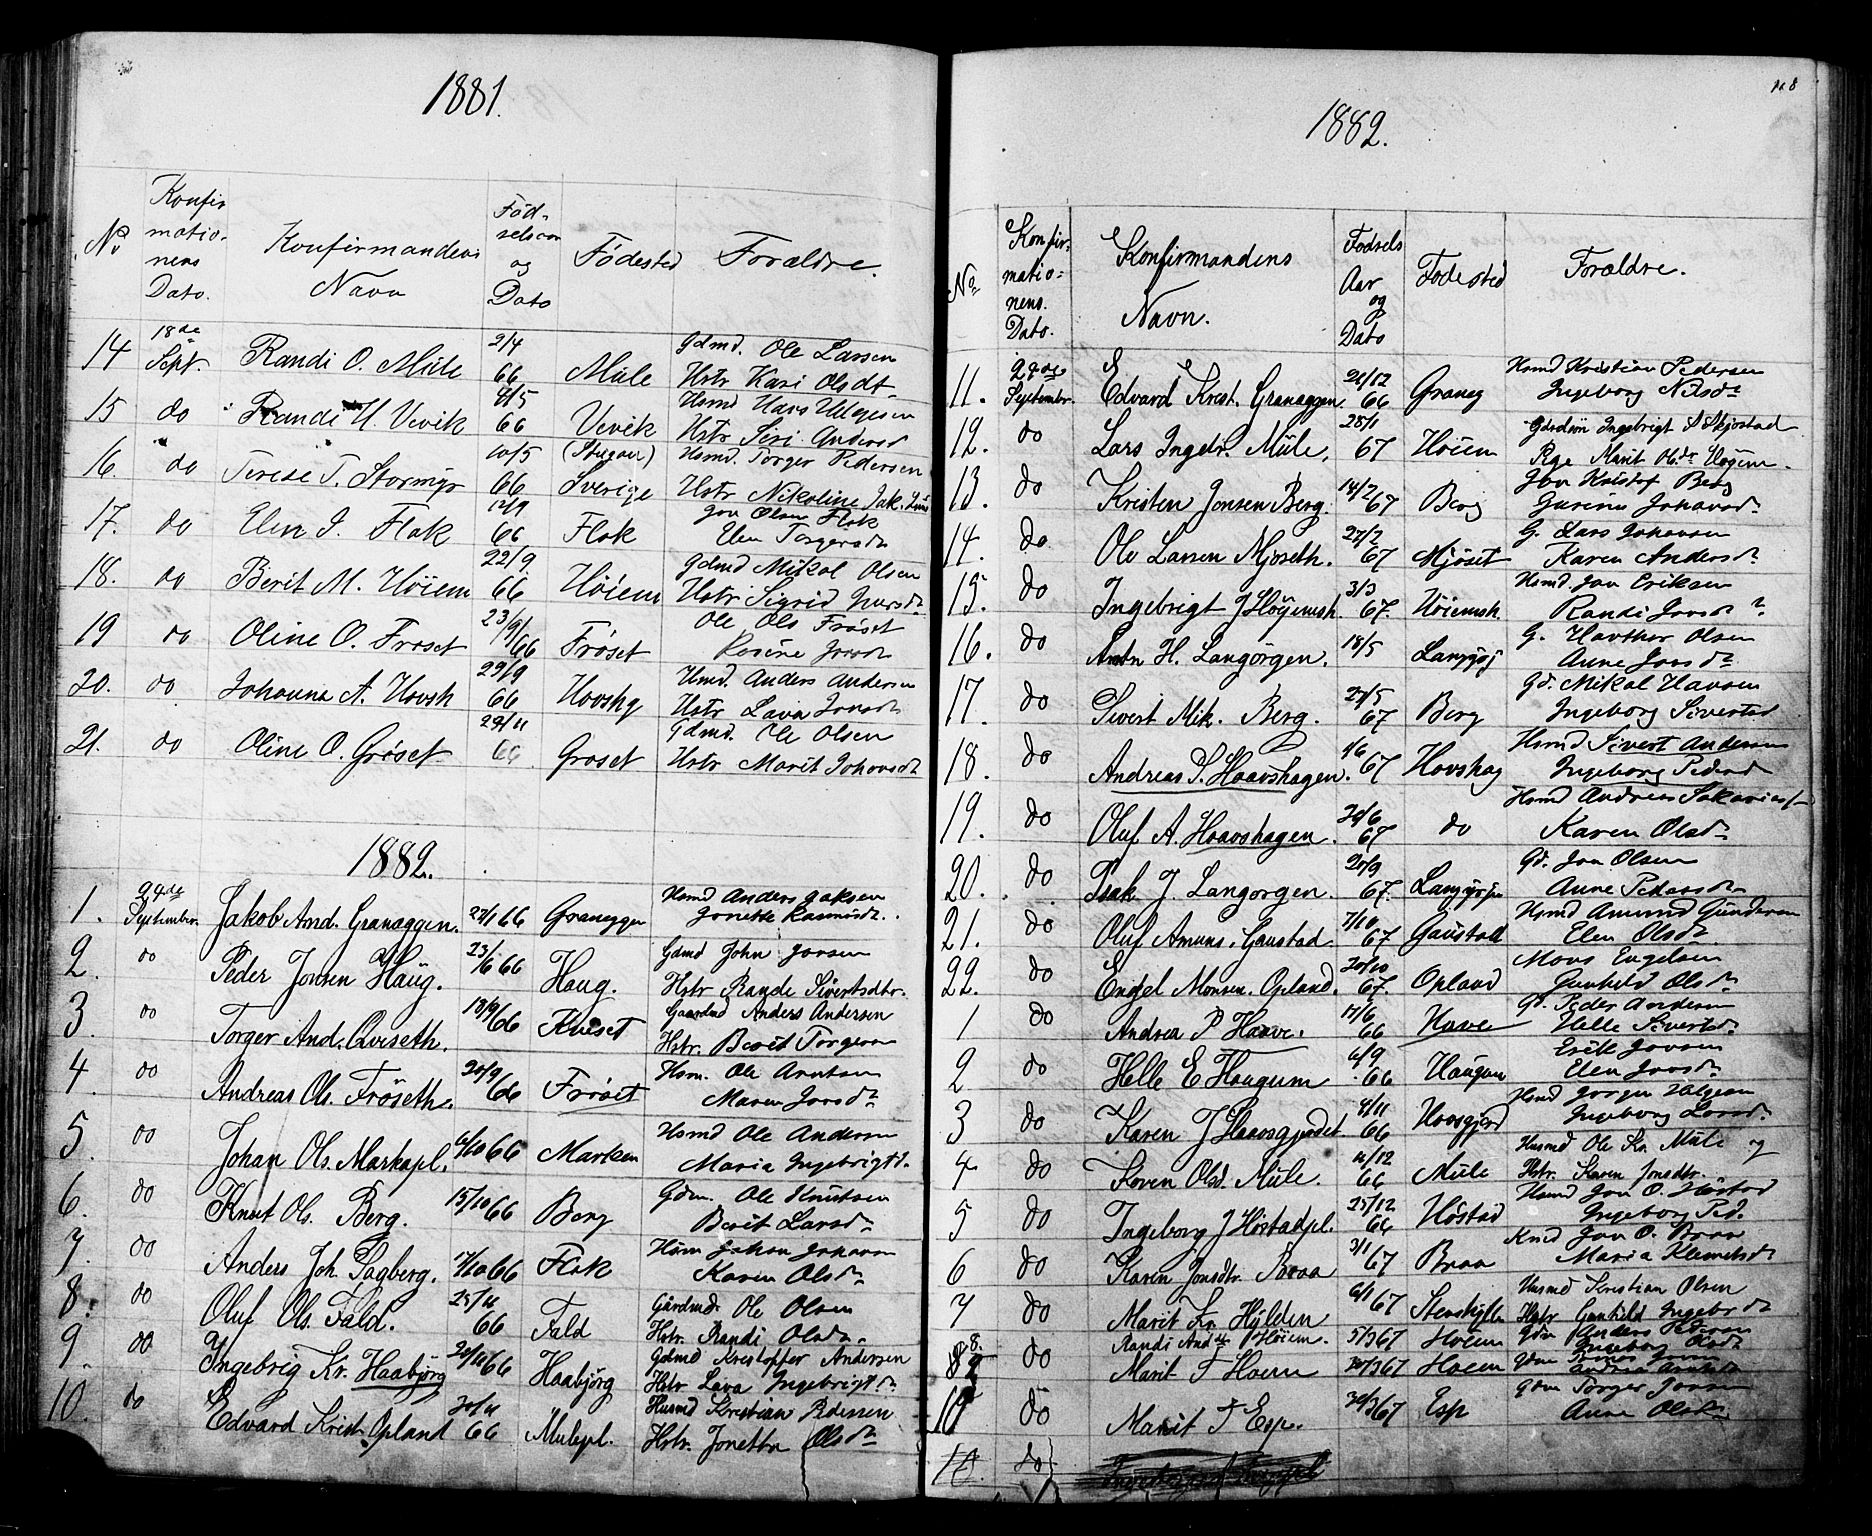 1881.
No
Konfir
matio-
nens
Dato.
Konfirmandens
Navn
Fød-
selsaar
og
Dato
Födested
Forældre.
14 18de Sept. Randi O. Mule 2/4 66 Mule Gdmd. Ole Larsen
Hstr Kari Olsdt
15 do Randi H. Vevik 8/5 66 Vevik Hsmd Hans Helgesen
Hstr Siri Andersd
16. do Terese T. Stormyr 10/5 66 Sverige Hsmd. Torger Pedersen
Hstr Nikoline Jak.
17. do Elen J. Flak 12/9 66 Flak Jon Olsen Flak
Elen Torgersdt
18. do Berit M. Höiem 22/9 66 Höiem Gdmd Mikal Olsen
Hstr Sigrid Iversdt
19 do Oline O. Frøset 23/9/66 Frøset Ole Ols Frøset
20. do Johanna A. Hovsh 29/9 66 Hovshg Hsmd. Anders Andersen
Hstr Lava Jonsdt
21. do Oline O. Grøset 22/11 66 Grøset Gdmd. Ole Olsen
Hstr Marit Johansdt
1882.
1. 24de September. Jakob And. Granaggen. 22/1 66 Graneggen Hsmd Anders Jaksen
Jonetta Rasmusdt.
2. do Peder Jonsen Haug. 23/6 66 Haug. Gdmd John Jonsen
Hstr Randi Sivertsdtr.
3. do Torger And. Qviseth. 13/9 66 Kviset Gaardmd Anders Andersen
Hstr. Berit Torgersn
4. do Andreas Ols. Frøseth. 20/9 66 Frøset Hsm. Ole Arntsen
Maren Jonsdt
5. do Johan Ols. Markapl. 6/10 66 Marken Hsmd Ole Andersen
Maria Ingebrigt.
6. do Knut Ols. Berg. 15/10 66 Berg Gdm. Ole Knutsen
Berit Larsdt
7. do Anders Joh. Sagberg. 17/10 66 Flak Hsm Johan Johansen
Karen Olsdt
8. do Oluf Ols. Fald. 25/11 66 Fald Gårdmd Ole Olsen
Hstr. Randi Olsdtr.
9. do Ingebrig Kr. Haabjørg 20/12 66 Haabjörg Gdmd Kristoffer Andersen
Hstr Lava Ingebrigtdt.
10. do Edvard Krist. Opland 30/11 66 Mulepl. Husmd Kristian Pedersen
Hstr. Jonetta Olsdt
1882.
No.
Konfir-
matio-
nens.
Dato.
Konfirmandens
Navn.
Fødsels
Aar
og
Dato
Fødested
Forældre.
11. 24de Septembr. Edvard Krist. Granaggen. 21/12 66 Graneg Hsmd Kristian Pedersen
Ingeborg Nilsdt
12. do Lars Ingebr. Mule. 28/1 67 Höiem Ingebrigt Skjøstad
Pige Marit Ols.dt Høgem.
13. do Kristen Jonsen Berg. 14/2 67 Berg Jon Kristof Berg
14. do Ole Larsen Mjøseth. 27/2 67 Mjøset G. Lars Johansen
Karen Andersdt.
15. do Ingebrigt J Högemsh. 3/3 67. Höiemsh. Hsmd Jon Eriksen
Randi Jonsdt
16. do H. Langørgen. 18/5 Langørj G. Havthor Olsen
Anne Jonsdt
17. do Sivert Mik. Berg. 27/5 67 Berg Gd. Mikal Hansen
Ingeborg Sivertsd
18. do Andreas S. Haavshagen. 1/6 67 Hovshag Hsmd Sivert Andersen
Ingeborg Pedersd
19. do Oluf A. Haavshagen. 24/6 67 do Hsmd Andreas Sakarias
Karen Olsdt
20. do Isak J Langørgen. 20/9 67. Langørjen Gd. Jon Olsen
Anne Pedersdt
21. do Oluf Amuns. Gaustad. 7/10 67 Gaustad Hsmd Amund Gundersen
Elen Olsdt.
22. do Engel Monsen. Opland. 20/10 67. Opland Mons Engelsen
Gunhild Olsdt
1 do Andrea P Haave. 17/6 66 Have Gd. Peder Andersen
Helle Sivertsd.
2 do Helle E Haugum 6/9 66 Haugum Erik Jonsen
Elen Jonsdt
3 do Karen J Haavsgjerdet. 4/11 66 Hovsgjerd Hsmd Jørgen Helgesen
Ingeborg Larsd.
4. do Karen Olsd. Mule. 11/12 66 Mule Husmd Ole Kr. Mule og
Hstr. Karen Jonsdtr.
5 do Ingeborg J Höstadpl. 25/12 66 Höstad Hsmd Jon O. Höstad
Ingeborg Ped.
6 do Karen Jonsdtr. Braa 3/1 67 Braa Jon O. Braa
Maria Klemetsdt
7 do Marit Kr. Hylden 6/1 67 Stenshylle Husmd Kristian Olsen
Hstr Gunhild Ingebrdt
8. do Randi Andsdt Høiem. 5/3 67 Hoem Gdm Anders Pedersen
Ingeborg Olsdt
9 Marit T Hoem 20/3 67 Hoem
10 do Marit T Esp. 30/3 67 Esp Gdm Torger Jonsen
Anne Olsdt
10. do